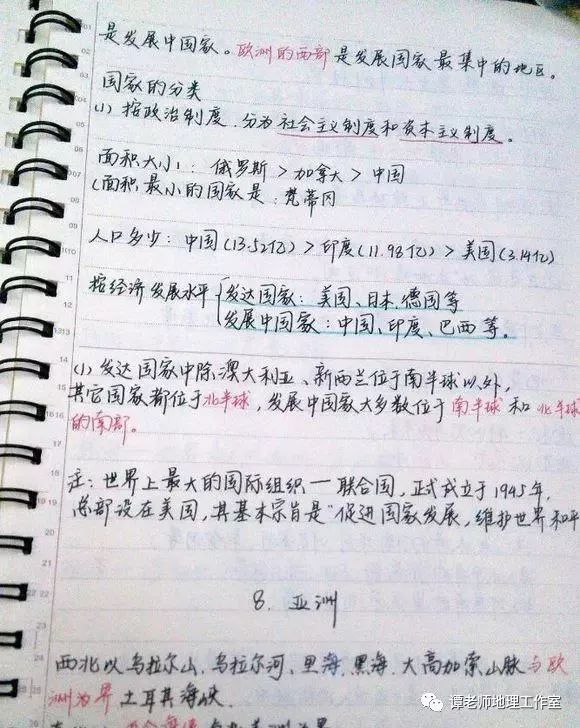 是发展中国家。欧洲的西部是发展国家最集中的地区。
国家的分类
(1) 按政治制度.分为社会主义制度和资本主义制度。
面积大小: 俄罗斯>加拿大>中国
(面积最小的国家是:梵蒂冈
人口多少: 中国(13.52亿)>印度(11.98亿)>美国(3.14亿)
按经济发展水平{发达国家: 美国、日本、德国等
发展中国家: 中国、印度、巴西等。
(1) 发达国家中除澳大利亚、新西兰位于南半球以外,
其它国家都位于北半球,发展中国家大多数位于南半球和北半球
的南部。
注: 世界上最大的国际组织—联合国,正式成立于1945年,
总部设在美国,其基本宗旨是"促进国家发展,维护世界和平
8. 亚洲
西北以乌拉尔山、乌拉尔河、里海、黑海、大高加索山脉与欧
洲为界 土耳其海峡.
谭老师地理工作室